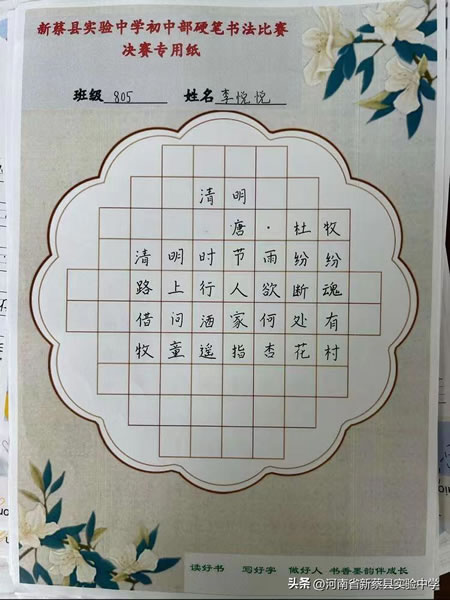 新蔡县实验中学初中部硬笔书法比赛
决赛专用纸
班级 805 姓名 李悦悦
清明
唐·杜牧
清明时节雨纷纷
路上行人欲断魂
借问酒家何处有
牧童遥指杏花村
读好书 写好字 做好人 书香墨韵伴成长
头条 @河南省新蔡县实验中学